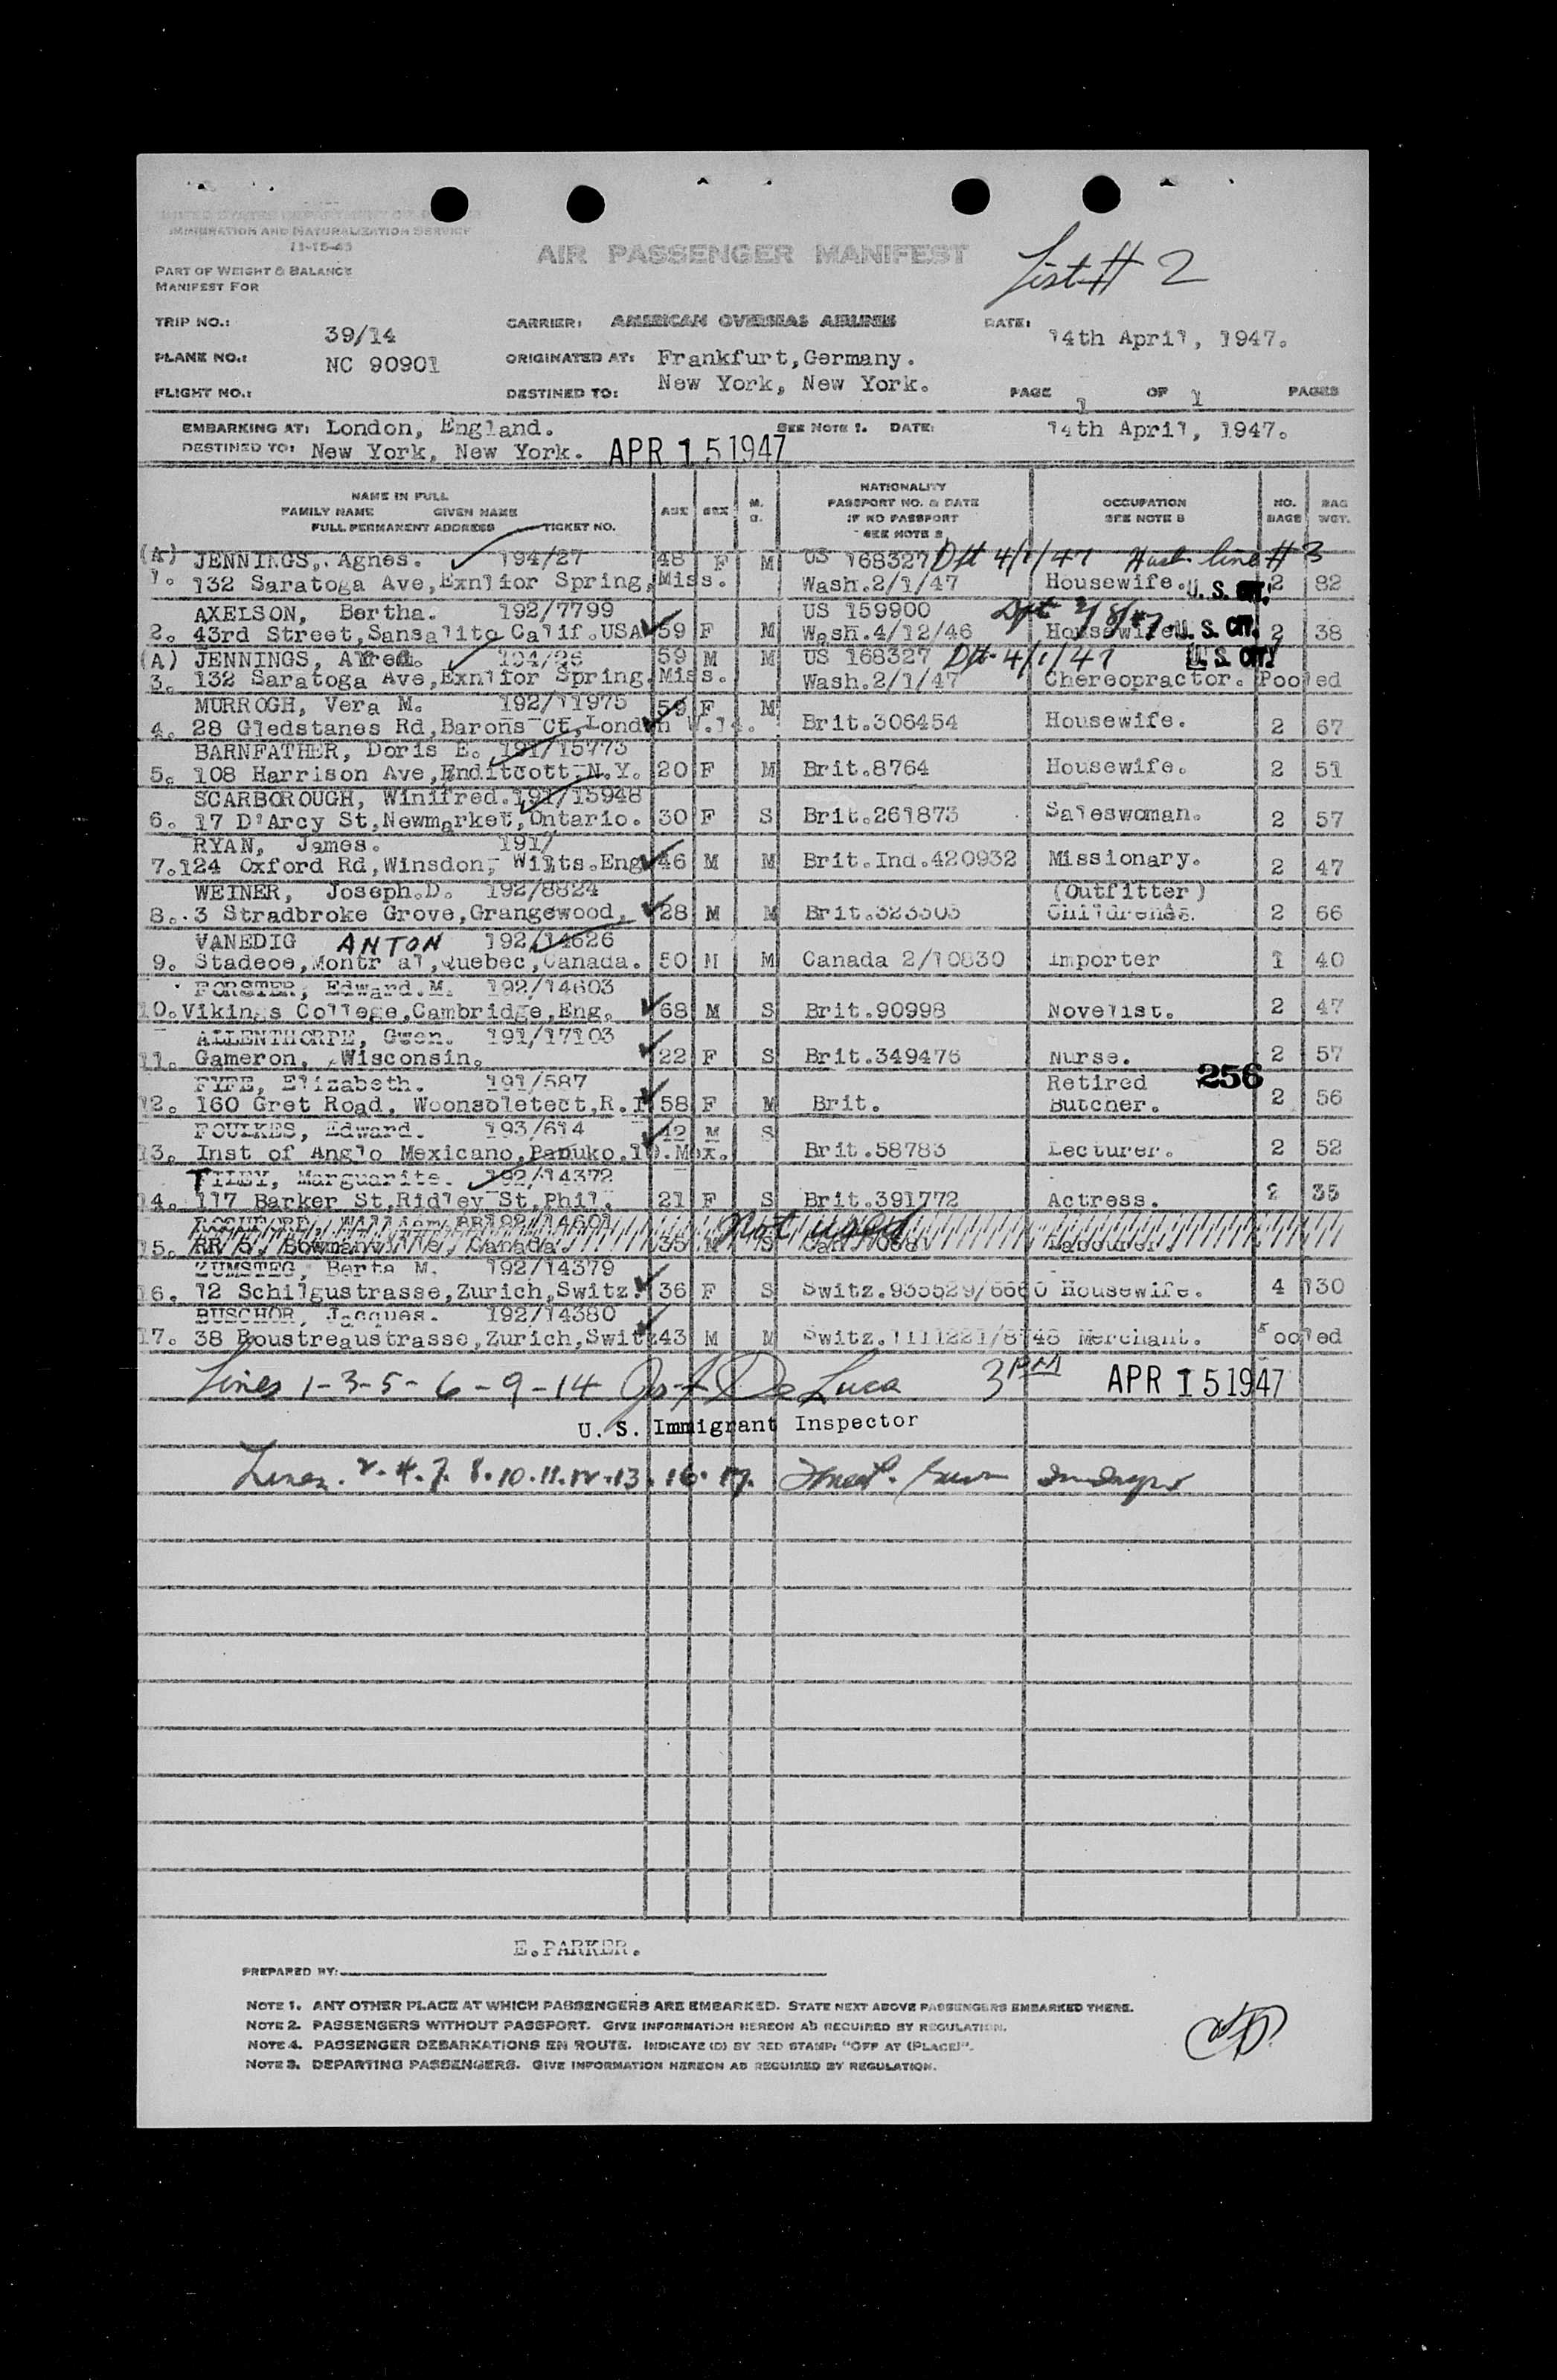 UNITED STATES DEPARTMENT OF
IMMIGRATION AND NATURALIZATION SERVICE
11-15-45
AIR PASSENGER MANIFEST
List # 2
PART OF WEIGHT & BALANCE
MANIFEST FOR
TRIP NO.: 39/14 CARRIER: AMERICAN OVERSEAS AIRLINES DATE: 14th April, 1947.
PLANE NO.: NC 90901 ORIGINATED AT: Frankfurt,Germany.
FLIGHT NO.: DESTINED TO: New York, New York. PAGE 1 OF 1 PAGES
EMBARKING AT: London, England. SEE NOTE 1. DATE: 14th April, 1947.
DESTINED TO: New York, New York. APR 15 1947
NAME IN FULL
FAMILY NAME GIVEN NAME
FULL PERMANENT ADDRESS TICKET NO. AGE SEX M. NATIONALITY
PASSPORT NO. & DATE
IF NO PASSPORT
SEE NOTE 2 OCCUPATION
SEE NOTE 3 NO.
BAGS BAG
WGT.
(A) JENNINGS, Agnes. 194/27 48 F M US 168327 Dpt 4/1/47 Husb. line # 3
1. 132 Saratoga Ave,Exnlior Spring,Miss. Wash.2/1/47 Housewife. U.S. CIT. 2 82
AXELSON, Bertha. 192/7799 US 159900 Dpt
2. 43rd Street,Sansalito Calif.USA 59 F M Wash.4/12/46 Housewife U.S. CIT. 2 38
(A) JENNINGS, Alfred. 194/26 59 M M US 168327 Dpt 4/1/47 U.S. CIT.
3. 132 Saratoga Ave,Exnlior Spring,Miss. Wash.2/1/47 Chereopractor. Pooled
MURROGH, Vera M. 192/11975 59 F M
4. 28 Gledstanes Rd,Barons Ct,London W.14. Brit.306454 Housewife. 2 67
BARNFATHER, Doris E. 191/15773
5. 108 Harrison Ave,Enditcott N.Y. 20 F M Brit.8764 Housewife. 2 51
SCARBOROUGH, Winifred.191/15948
6. 17 D'Arcy St,Newmarket,Ontario. 30 F S Brit.261873 Saleswoman. 2 57
RYAN, James. 191/
7.124 Oxford Rd,Winsdon, Wilts.Eng 46 M M Brit.Ind.420932 Missionary. 2 47
WEINER, Joseph.D. 192/8824 (Outfitter)
8. 3 Stradbroke Grove,Grangewood, 28 M M Brit.323503 Childrens. 2 66
VANEDIG ANTON 192/14626
9. Stadeoe,Montr al,Quebec,Canada. 50 M M Canada 2/10830 Importer 1 40
FORSTER, Edward.M. 192/14603
10.Vikings College,Cambridge,Eng. 68 M S Brit.90998 Novelist. 2 47
ALLENTHORPE, Gwen. 191/17103
11. Gameron, Wisconsin. 22 F S Brit.349476 Nurse. 2 57
FYFE, Elizabeth. 191/587 Retired 256
12. 160 Gret Road, Woonsoletect,R.I 58 F M Brit. Butcher. 2 56
FOULKES, Edward. 193/614 42 M S
13. Inst of Anglo Mexicano,Panuko.10.Mex. Brit.58783 Lecturer. 2 52
TILEY, Marguarite. 192/14372
14. 117 Barker St,Ridley St,Phil. 21 F S Brit.391772 Actress. 2 35
192/14601 Not used
15. RR 5, Bowmanville, Canada. 35 M S Labourer.
ZUMSTEG, Berta M. 192/14379
16. 12 Schilgustrasse,Zurich,Switz. 36 F S Switz.935529/6560 Housewife. 4 130
BUSCHOR, Jacques. 192/14380
17. 38 Boustreaustrasse,Zurich,Switz 43 M M Switz.1111221/8748 Merchant. Pooled
Lines 1-3-5-6-9-14 Jos. F. De Luca 3 PM APR 15 1947
U. S. Immigrant Inspector
Lines. 2.4.7.8.10.11.12.13.16.17.
E.PARKER.
PREPARED BY:
NOTE 1. ANY OTHER PLACE AT WHICH PASSENGERS ARE EMBARKED. STATE NEXT ABOVE PASSENGERS EMBARKED THERE.
NOTE 2. PASSENGERS WITHOUT PASSPORT. GIVE INFORMATION HEREON AS REQUIRED BY REGULATION.
NOTE 4. PASSENGER DEBARKATIONS EN ROUTE. INDICATE (D) BY RED STAMP: "OFF AT (PLACE)".
NOTE 3. DEPARTING PASSENGERS. GIVE INFORMATION HEREON AS REQUIRED BY REGULATION.